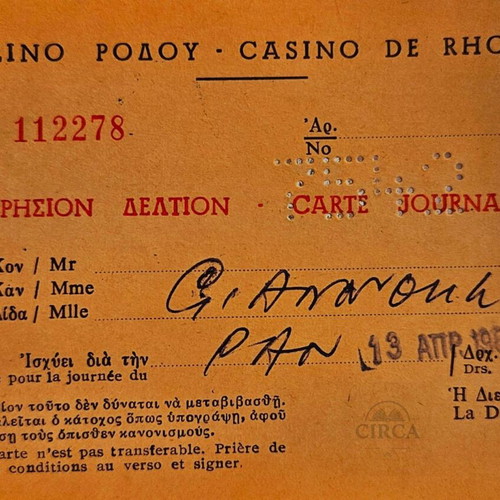 ΖΙΝΟ ΡΟΔΟΥ - CASINO DE RHO
112278
Ἀρ.
No
ΡΗΣΙΟΝ ΔΕΛΤΙΟΝ - CARTE JOURNA
Κον / Mr
Κάν / Mme
ίδα / Mlle
Ἰσχύει διὰ τὴν
PAN
13 ΑΠΡ. 198
Δρχ.
Drs.
pour la journée du
Ἡ Διε
La D
ίον τοῦτο δὲν δύναται νὰ μεταβιβασθῇ.
λεῖται ὁ κάτοχος ὅπως ὑπογράψῃ, ἀφοῦ
σῃ τοὺς ὄπισθεν κανονισμούς.
arte n'est pas transferable. Prière de
conditions au verso et signer.
CIRCA